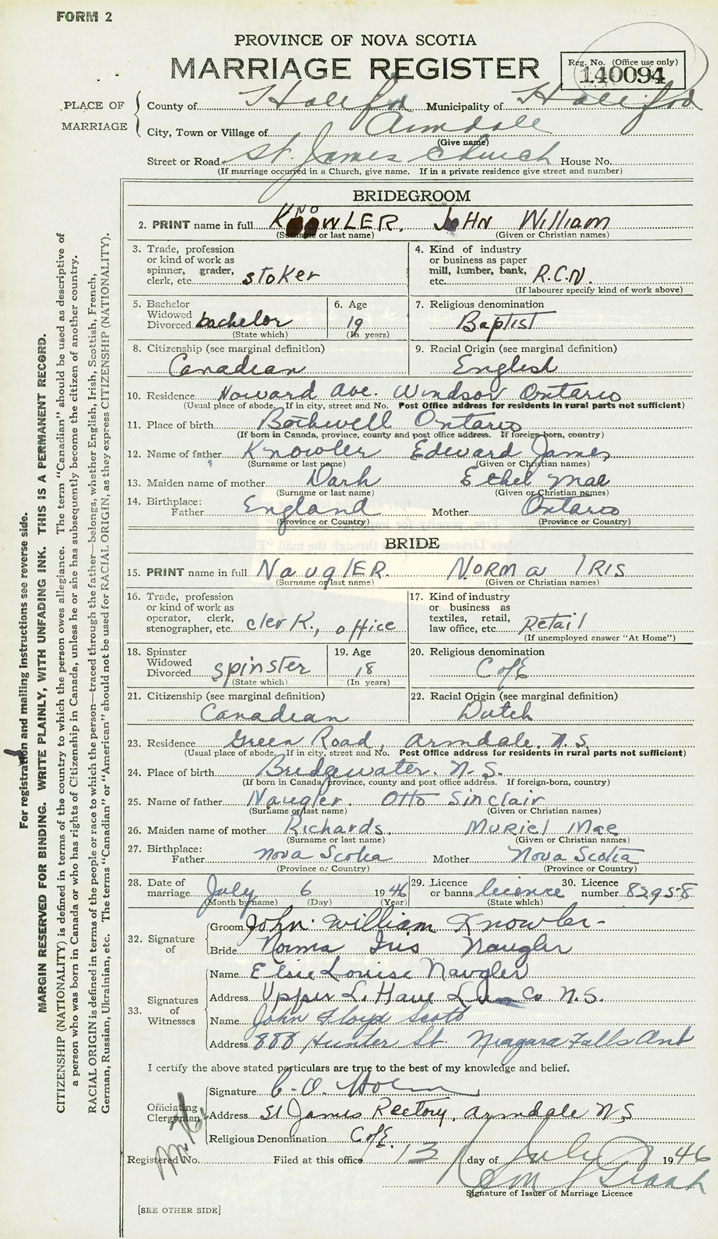 FORM 2
PROVINCE OF NOVA SCOTIA
MARRIAGE REGISTER
Reg. No. (Office use only)
140094
PLACE OF MARRIAGE
County of Halifax Municipality of Halifax
City, Town or Village of Armdale
(Give name)
Street or Road St. James Church House No.
(If marriage occurred in a Church, give name. If in a private residence give street and number)
BRIDEGROOM
2. PRINT name in full KNOWLER. JOHN William
(Surname or last name) (Given or Christian names)
3. Trade, profession or kind of work as spinner, grader, clerk, etc. stoker
4. Kind of industry or business as paper mill, lumber, bank, etc. R.C.N.
(If labourer specify kind of work above)
5. Bachelor Widowed Divorced bachelor
(State which)
6. Age 19
(In years)
7. Religious denomination
Baptist
8. Citizenship (see marginal definition)
Canadian
9. Racial Origin (see marginal definition)
English
10. Residence Howard Ave. Windsor Ontario
(Usual place of abode. If in city, street and No. Post Office address for residents in rural parts not sufficient)
11. Place of birth Bothwell Ontario
(If born in Canada, province, county and post office address. If foreign-born, country)
12. Name of father Knowler Edward James
(Surname or last name) (Given or Christian names)
13. Maiden name of mother Dark Ethel Mae
(Surname or last name) (Given or Christian names)
14. Birthplace: Father England Mother Ontario
(Province or Country) (Province or Country)
BRIDE
15. PRINT name in full NAUGLER. NORMA IRIS
(Surname or last name) (Given or Christian names)
16. Trade, profession or kind of work as operator, clerk, stenographer, etc. clerk, office
17. Kind of industry or business as textiles, retail, law office, etc. Retail
(If unemployed answer "At Home")
18. Spinster Widowed Divorced spinster
(State which)
19. Age 18
(In years)
20. Religious denomination
C of E
21. Citizenship (see marginal definition)
Canadian
22. Racial Origin (see marginal definition)
Dutch
23. Residence Green Road, Armdale, N.S.
(Usual place of abode. If in city, street and No. Post Office address for residents in rural parts not sufficient)
24. Place of birth Bridgewater. N.S.
(If born in Canada, province, county and post office address. If foreign-born, country)
25. Name of father Naugler Otto Sinclair
(Surname or last name) (Given or Christian names)
26. Maiden name of mother Richards Muriel Mae
(Surname or last name) (Given or Christian names)
27. Birthplace: Father Nova Scotia Mother Nova Scotia
(Province or Country) (Province or Country)
28. Date of marriage July 6 1946
(Month by name) (Day) (Year)
29. Licence or banns licence
(State which)
30. Licence number 83958
32. Signature of
Groom John William Knowler
Bride Norma Iris Naugler
33. Signatures of Witnesses
Name Elsie Louise Naugler
Address Upper L. Have Lun Co N.S.
Name John Floyd Scott
Address 888 Hunter St. Niagara Falls Ont
I certify the above stated particulars are true to the best of my knowledge and belief.
Officiating Clergyman
Signature
Address St James Rectory, Armdale N.S
Religious Denomination C of E.
Registered No. Filed at this office 13 day of July 1946
Signature of Issuer of Marriage Licence
[SEE OTHER SIDE]
For registration and mailing instructions see reverse side.
MARGIN RESERVED FOR BINDING. WRITE PLAINLY, WITH UNFADING INK. THIS IS A PERMANENT RECORD.
CITIZENSHIP (NATIONALITY) is defined in terms of the country to which the person owes allegiance. The term "Canadian" should be used as descriptive of
a person who was born in Canada or who has rights of Citizenship in Canada, unless he or she has subsequently become the citizen of another country.
RACIAL ORIGIN is defined in terms of the people or race to which the person—traced through the father—belongs, whether English, Irish, Scottish, French,
German, Russian, Ukrainian, etc. The terms "Canadian" or "American" should not be used for RACIAL ORIGIN, as they express CITIZENSHIP (NATIONALITY).